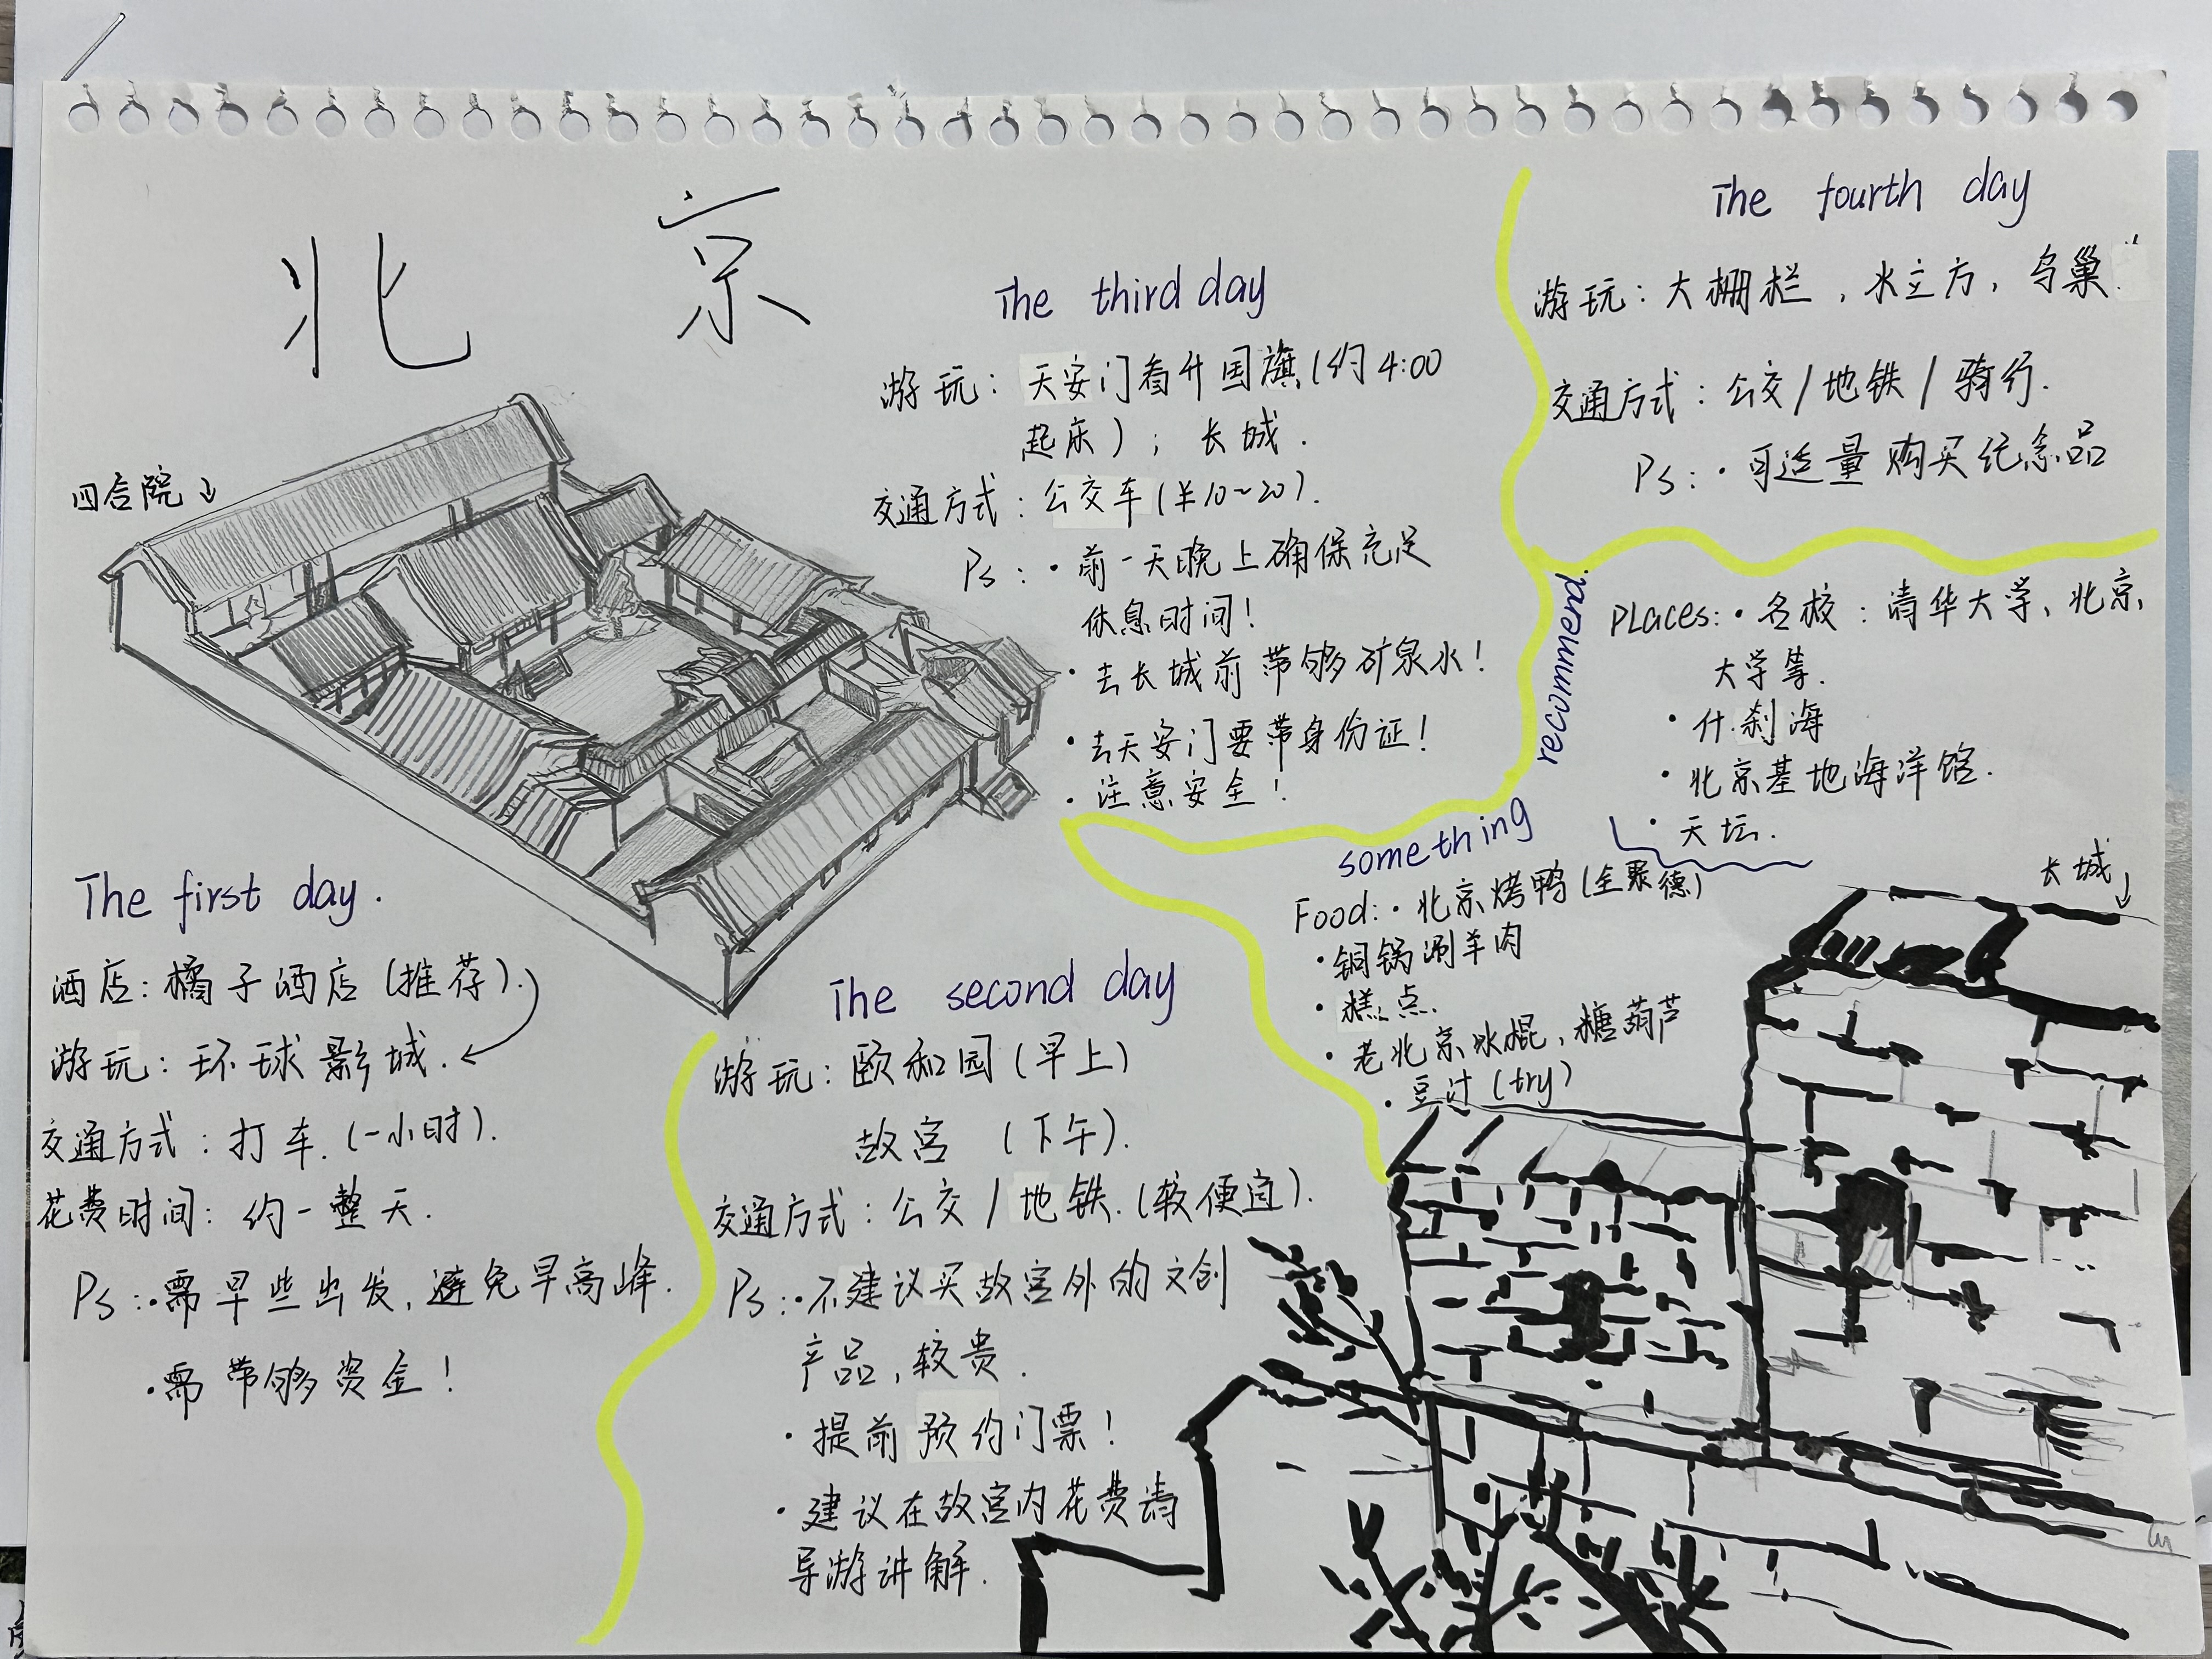 北京
四合院
The first day.
酒店：橘子酒店（推荐）.
游玩：环球影城.
交通方式：打车.（一小时）.
花费时间：约一整天.
Ps：·需早些出发，避免早高峰.
·需带够资金！
The second day
游玩：颐和园（早上）
故宫（下午）.
交通方式：公交/地铁.（较便宜）.
Ps：·不建议买故宫外的文创
产品，较贵.
·提前预约门票！
·建议在故宫内花费请
导游讲解.
The third day
游玩：天安门看升国旗（约4:00
起床）；长城.
交通方式：公交车（¥10~20）.
Ps：·前一天晚上确保充足
休息时间！
·去长城前带够矿泉水！
·去天安门要带身份证！
·注意安全！
The fourth day
游玩：大栅栏，水立方，鸟巢.
交通方式：公交/地铁/骑行.
Ps：·可适量购买纪念品
recommend.
PLaces：·名校：清华大学、北京、
大学等.
·什刹海
·北京基地海洋馆.
·天坛.
something
Food：·北京烤鸭（全聚德）
·铜锅涮羊肉
·糕点.
·老北京冰棍，糖葫芦
·豆汁（try）
长城